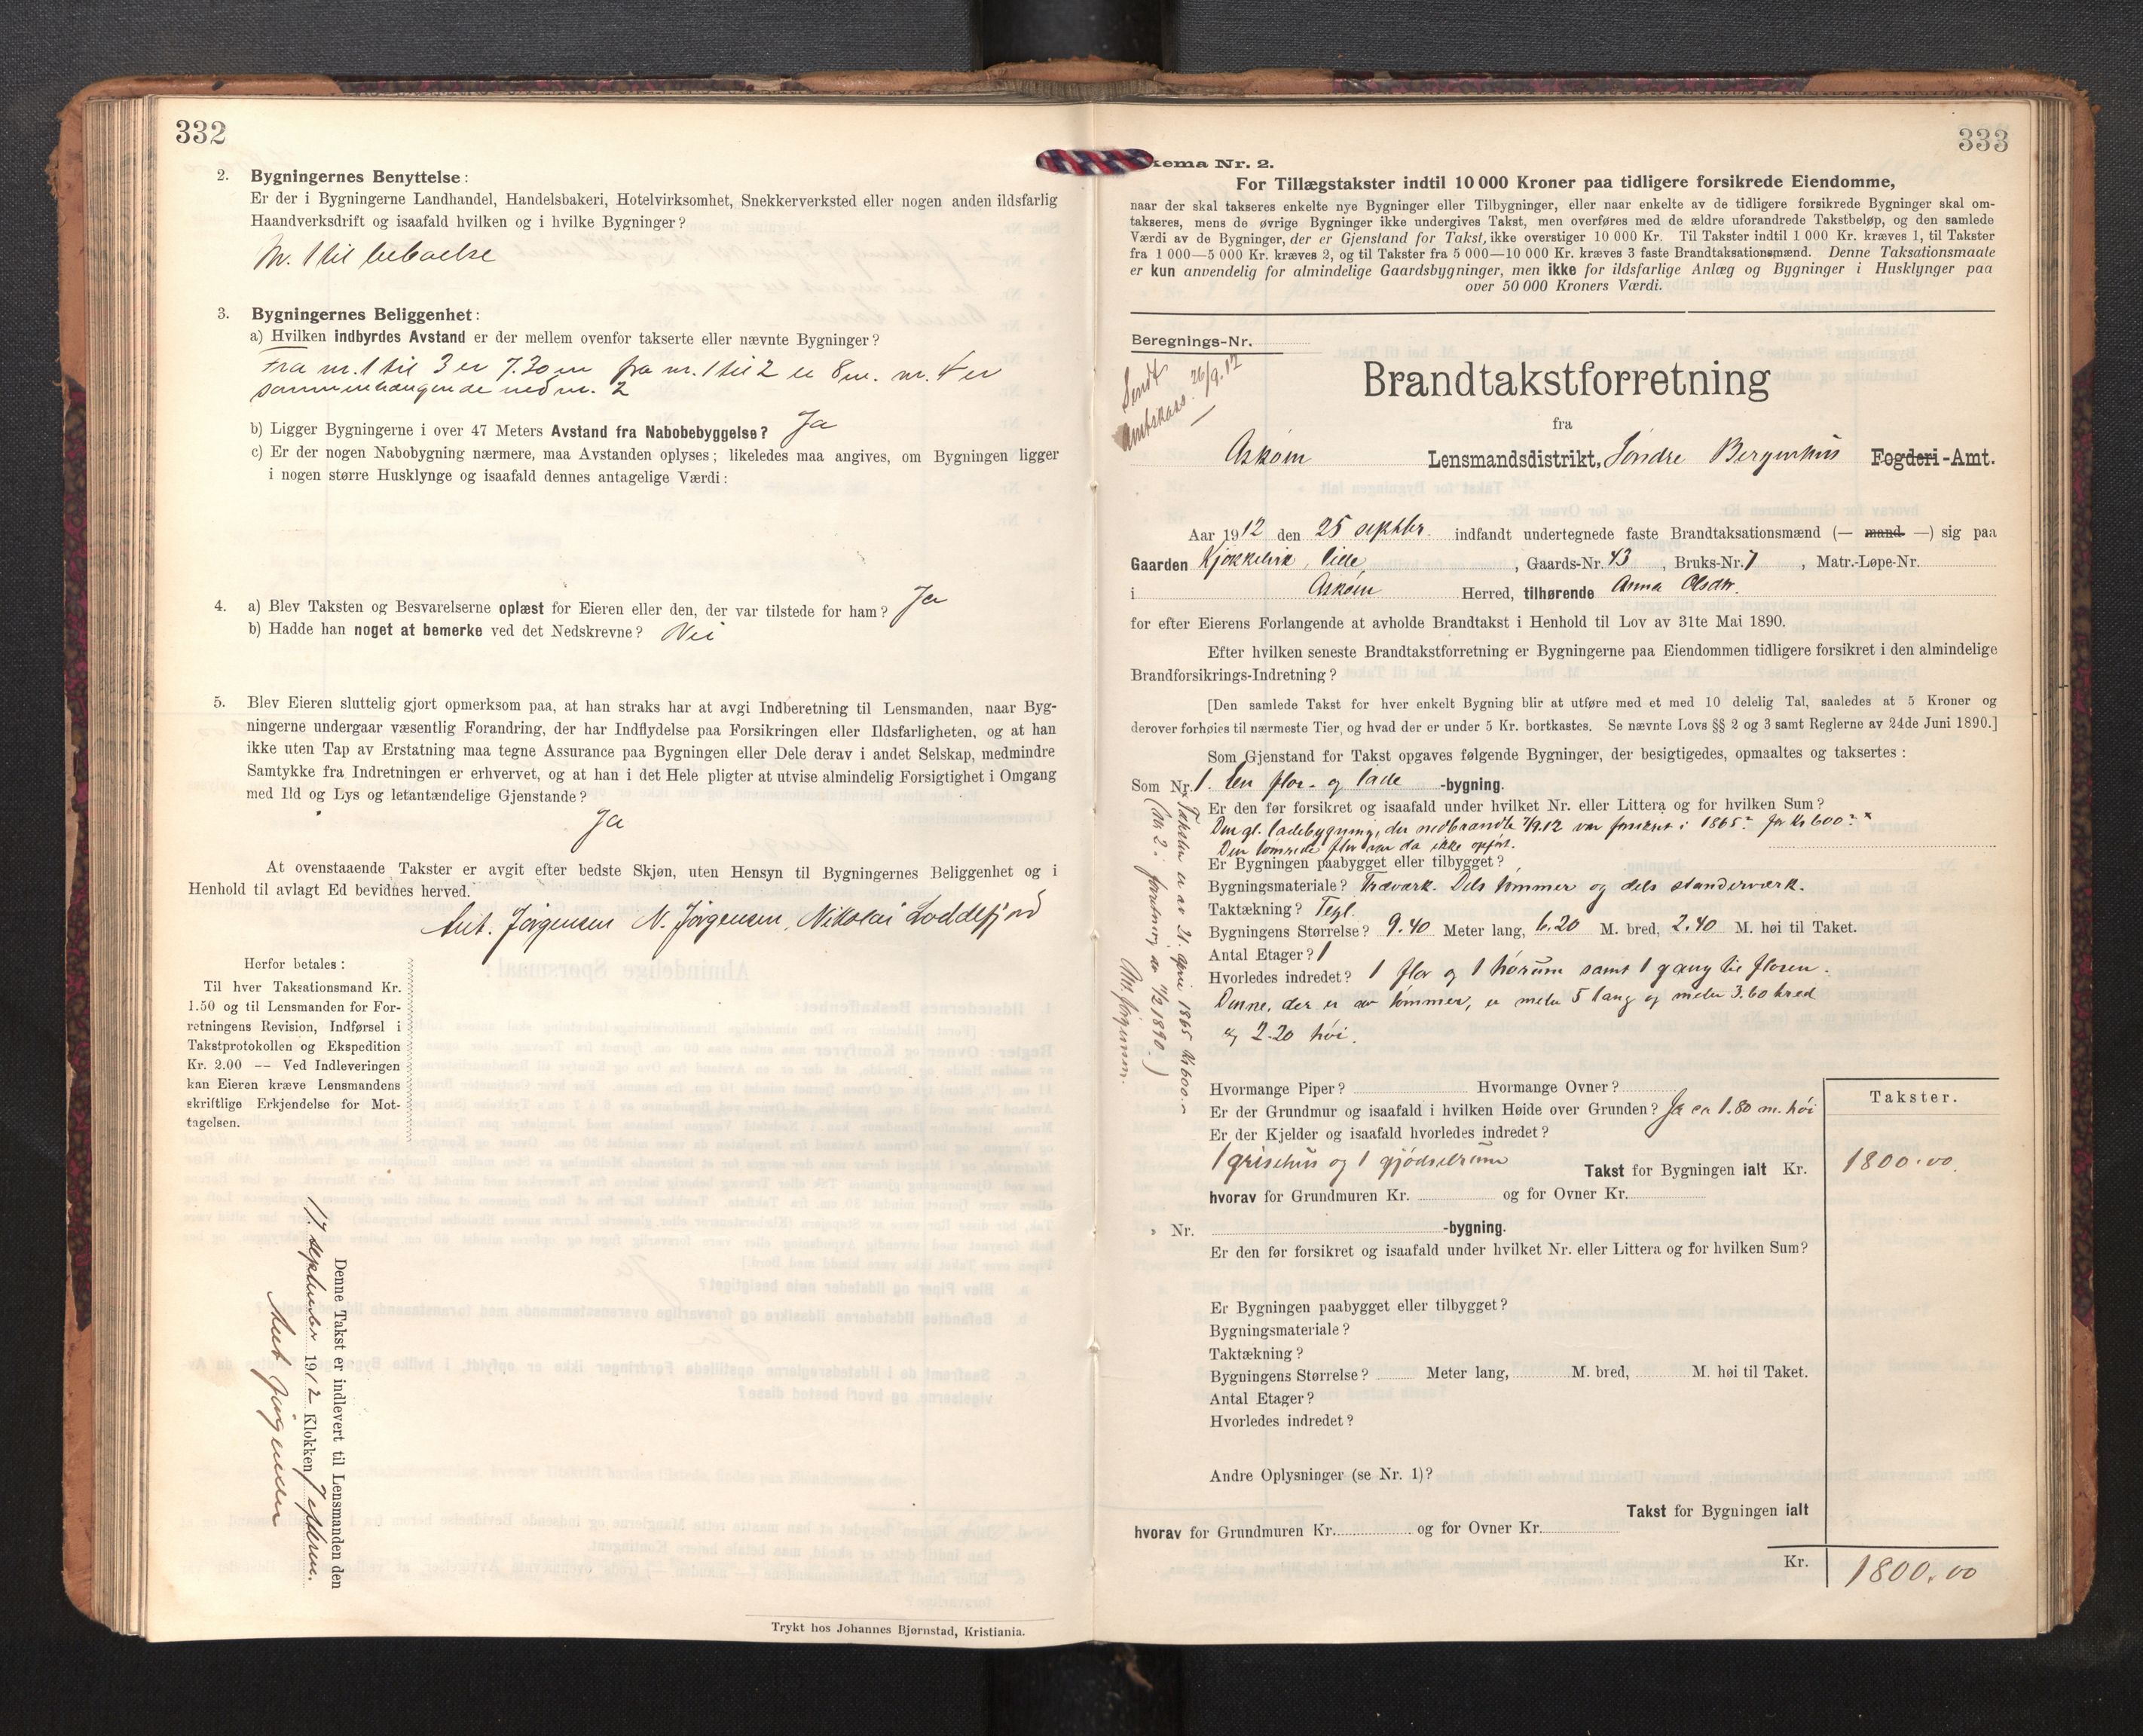 332
2. Bygningernes Benyttelse:
Er der i Bygningerne Landhandel, Handelsbakeri, Hotelvirksomhet, Snekkerverksted eller nogen anden ildsfarlig
Haandverksdrift og isaafald hvilken og i hvilke Bygninger?
Nr. 1 til beboelse
3. Bygningernes Beliggenhet:
a) Hvilken indbyrdes Avstand er der mellem ovenfor takserte eller nævnte Bygninger?
Fra nr. 1 til 3 er 7.20 m fra nr. 1 til 2 er 8 m. nr. 4 er
sammenhængende med nr. 2
b) Ligger Bygningerne i over 47 Meters Avstand fra Nabobebyggelse? Ja
c) Er der nogen Nabobygning nærmere, maa Avstanden oplyses; likeledes maa angives, om Bygningen ligger
i nogen større Husklynge og isaafald dennes antagelige Værdi:
4. a) Blev Taksten og Besvarelserne oplæst for Eieren eller den, der var tilstede for ham? Ja
b) Hadde han noget at bemerke ved det Nedskrevne? Nei
5. Blev Eieren sluttelig gjort opmerksom paa, at han straks har at avgi Indberetning til Lensmanden, naar Byg-
ningerne undergaar væsentlig Forandring, der har Indflydelse paa Forsikringen eller Ildsfarligheten, og at han
ikke uten Tap av Erstatning maa tegne Assurance paa Bygningen eller Dele derav i andet Selskap, medmindre
Samtykke fra Indretningen er erhvervet, og at han i det Hele pligter at utvise almindelig Forsigtighet i Omgang
med Ild og Lys og letantændelige Gjenstande?
Ja
At ovenstaaende Takster er avgit efter bedste Skjøn, uten Hensyn til Bygningernes Beliggenhet og i
Henhold til avlagt Ed bevidnes herved.
Ant. Jørgensen N. Jørgensen, Nikolai Loddefjord
Herfor betales:
Til hver Taksationsmand Kr.
1.50 og til Lensmanden for For-
retningens Revision, Indførsel i
Takstprotokollen og Ekspedition
Kr. 2.00 — Ved Indleveringen
kan Eieren kræve Lensmandens
skriftlige Erkjendelse for Mot-
tagelsen.
Denne Takst er indlevert til Lensmanden den
17 september 1912 Klokken 7 efterm.
Ant Jørgensen
Trykt hos Johannes Bjørnstad, Kristiania.
333
kema Nr. 2.
For Tillægstakster indtil 10 000 Kroner paa tidligere forsikrede Eiendomme,
naar der skal takseres enkelte nye Bygninger eller Tilbygninger, eller naar enkelte av de tidligere forsikrede Bygninger skal om-
takseres, mens de øvrige Bygninger ikke undergives Takst, men overføres med de ældre uforandrede Takstbeløp, og den samlede
Værdi av de Bygninger, der er Gjenstand for Takst, ikke overstiger 10 000 Kr. Til Takster indtil 1 000 Kr. kræves 1, til Takster
fra 1 000—5 000 Kr. kræves 2, og til Takster fra 5 000—10 000 Kr. kræves 3 faste Brandtaksationsmænd. Denne Taksationsmaate
er kun anvendelig for almindelige Gaardsbygninger, men ikke for ildsfarlige Anlæg og Bygninger i Husklynger paa
over 50 000 Kroners Værdi.
Beregnings-Nr.
Sendt
Amtskass. 26/9.12
Brandtakstforretning
fra
Askøen Lensmandsdistrikt, Søndre Bergenhus Fogderi-Amt.
Aar 1912 den 25 septbr. indfandt undertegnede faste Brandtaksationsmænd (— mand —) sig paa
Gaarden Kjøkkelvik, lille, Gaards-Nr. 43, Bruks-Nr. 7, Matr.-Løpe-Nr.
i Askøen Herred, tilhørende Anna Olsdtr.
for efter Eierens Forlangende at avholde Brandtakst i Henhold til Lov av 31te Mai 1890.
Efter hvilken seneste Brandtakstforretning er Bygningerne paa Eiendommen tidligere forsikret i den almindelige
Brandforsikrings-Indretning?
[Den samlede Takst for hver enkelt Bygning blir at utføre med et med 10 delelig Tal, saaledes at 5 Kroner og
derover forhøies til nærmeste Tier, og hvad der er under 5 Kr. bortkastes. Se nævnte Lovs §§ 2 og 3 samt Reglerne av 24de Juni 1890.]
Som Gjenstand for Takst opgaves følgende Bygninger, der besigtigedes, opmaaltes og taksertes:
Som Nr. 1. en flor- og lade -bygning.
Er den før forsikret og isaafald under hvilket Nr. eller Littera og for hvilken Sum?
Den gl. ladebygning, der nedbrandte 7/9.12 var forsikret i 1865 for Kr 600
Den tømrede flor var da ikke opført.
Er Bygningen paabygget eller tilbygget?
Bygningsmateriale? Træværk. Dels tømmer og dels standerværk.
Taktækning? Tegl.
Bygningens Størrelse? 9.40 Meter lang, 6.20 M. bred, 2.40 M. høi til Taket.
Antal Etager? 1
Hvorledes indredet? 1 flor og 1 hørum samt 1 gang til floren.
Denne, der er av tømmer, er meter 5 lang og meter 3.60 bred
og 2.20 høi.
Taksten er av 21 april 1865 Kr 600.-
(Nr. 2 i forretning av 11/2 1890.)
Ant Jørgensen.
Hvormange Piper? Hvormange Ovner?
Er der Grundmur og isaafald i hvilken Høide over Grunden? Ja ca 1.80 m. høi
Er der Kjelder og isaafald hvorledes indredet?
1 grisehus og 1 gjødselrum
Takster.
Takst for Bygningen ialt Kr. 1800.00
hvorav for Grundmuren Kr. og for Ovner Kr.
" Nr. -bygning.
Er den før forsikret og isaafald under hvilket Nr. eller Littera og for hvilken Sum?
Er Bygningen paabygget eller tilbygget?
Bygningsmateriale?
Taktækning?
Bygningens Størrelse? Meter lang, M. bred, M. høi til Taket.
Antal Etager?
Hvorledes indredet?
Andre Oplysninger (se Nr. 1)?
Takst for Bygningen ialt
hvorav for Grundmuren Kr. og for Ovner Kr.
Kr. 1800.00